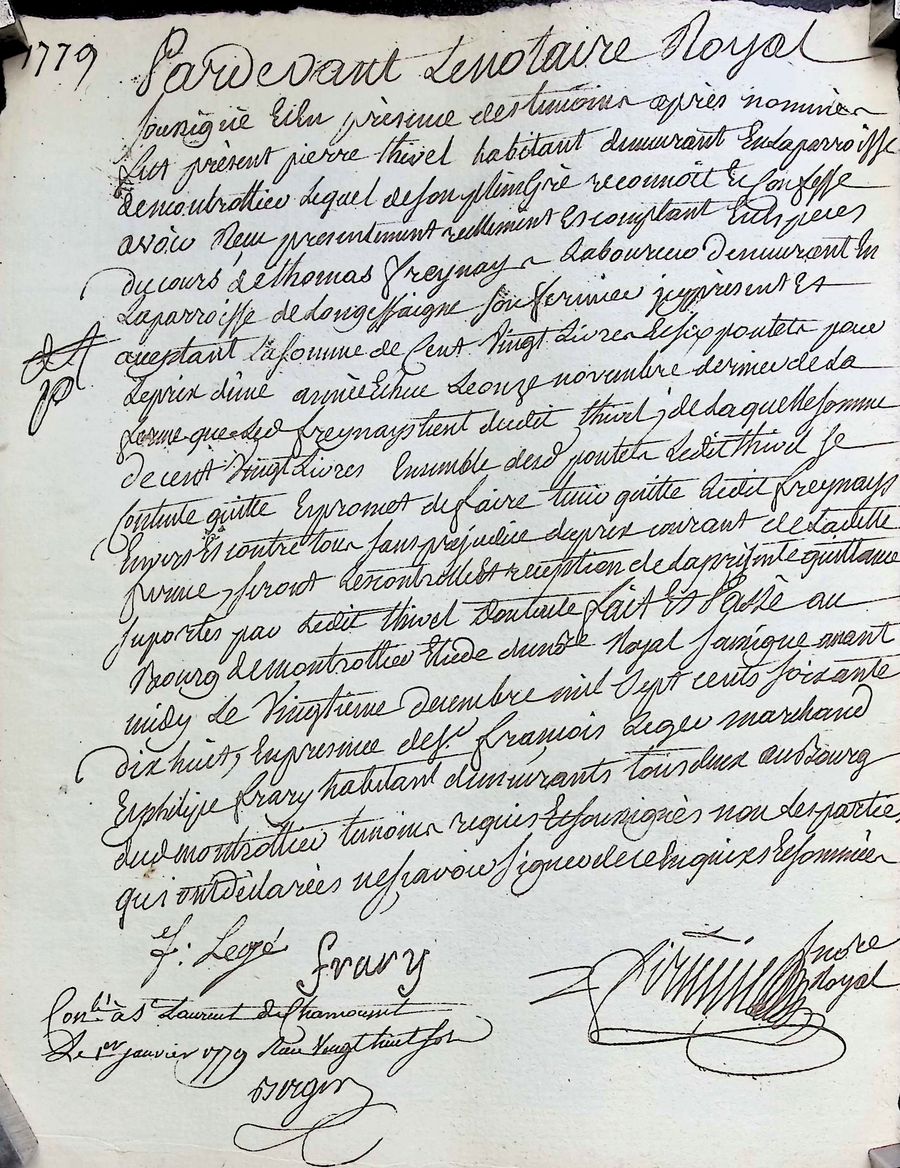 1779
Pardevant Le notaire Royal
soussigné Et En présence des temoins après nommés
fut présent pierre thivel habitant demeurant En La parroisse
de montrottier Lequel de son plein Gré reconnoit Et Confesse
avoir Reçu présentement reellement Et comptant En Espèces
du cours de thomas freynay Laboureur demeurant En
La parroisse de Longessaigne son fermier icy présent Et
aceptant La somme de Cent Vingt Livres Et six poulets pour
Le prix d'une année Echue Le onze novembre dernier de La
ferme que Led freynays tient dudit thivel, de Laquelle somme
de cent Vingt Livres Ensemble desd poulets Ledit thivel se
Contente quitte Et promet de faire tenir quitte Ledit freynays
Envers Et contre tous sans préjudice du prix courant de Ladite
ferme, seront Les controlle Et réception de La présente quittance
suportés par Ledit thivel Dont acte fait Et Passé au
Bourg de montrottier Etude du nre Royal soussigné avant
midy Le Vingtieme decembre mil sept cents soixante
dix huit, En présence de Sr. françois Leger marchand
Et philipe frary habitant demeurants tous deux au Bourg
dud montrottier temoins requis Et soussignés non Les parties
qui ont déclarées ne sçavoir signer de ce Enquises Et sommées
f: Legé
frary
nore
Royal
Conlé à St Laurent de Chamousset
Le 1er janvier 1779 Reçu Vingt huit sols